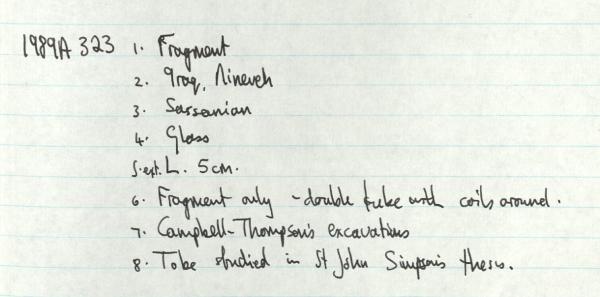 1989A 323 1. Fragment
2. Iraq, Nineveh
3. Sassanian
4. Glass
5. ext. L. 5cm.
6. Fragment only - double tube with coils around.
7. Campbell-Thompson's excavations
8. To be studied in St John Simpson's thesis.